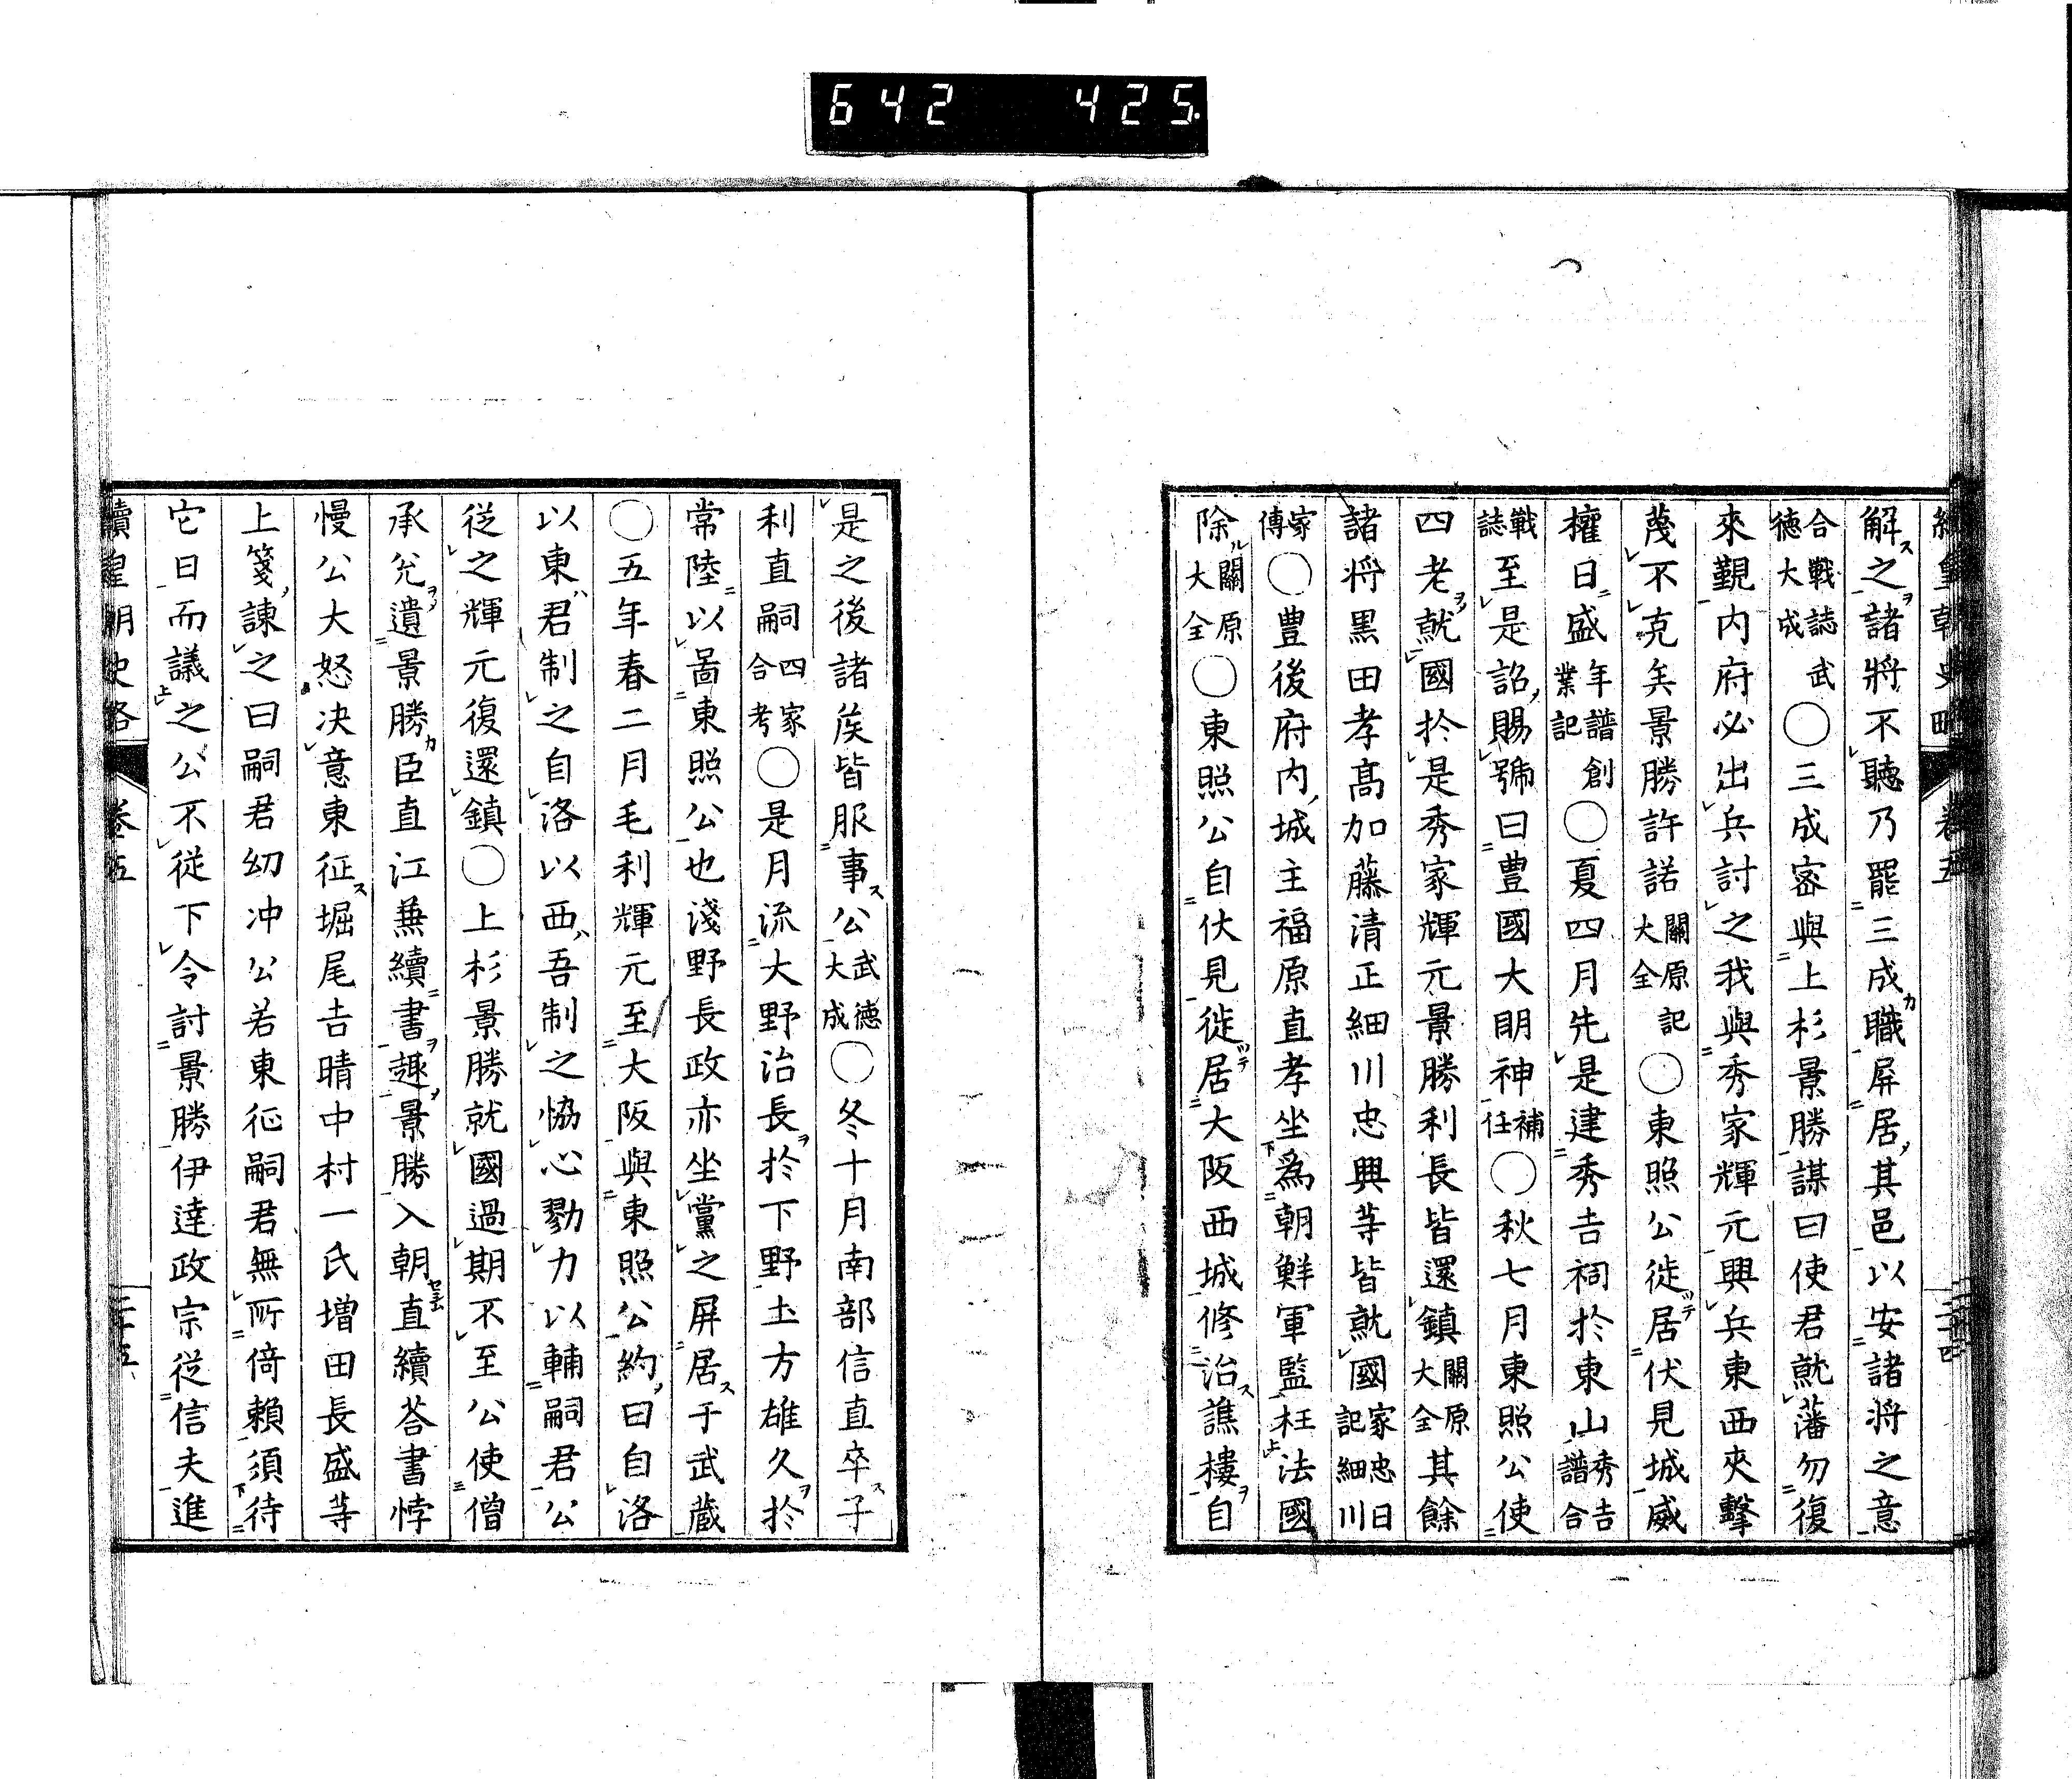 642 425.
續皇朝史略 卷五
解之諸將不聽乃罷三成職屏居其邑以安諸將之意
合戰誌武德大成〇三成密與上杉景勝謀曰使君就藩勿復
來覲內府必出兵討之我與秀家輝元興兵東西夾擊
蔑不克矣景勝許諾關原記大全〇東照公徙居伏見城威
權日盛年譜創業記〇夏四月先是建秀吉祠於東山秀吉譜合
戰誌至是詔賜號曰豊國大明神補任〇秋七月東照公使
四老就國於是秀家輝元景勝利長皆還鎮關原大全其餘
諸將黑田孝高加藤清正細川忠興等皆就國家忠日記細川
家傳〇豊後府內城主福原直孝坐為朝鮮軍監枉法國
除關原大全〇東照公自伏見徙居大阪西城修治譙樓自
是之後諸侯皆服事公武德大成〇冬十月南部信直卒子
利直嗣四家合考〇是月流大野治長於下野土方雄久於
常陸以啚東照公也淺野長政亦坐黨之屏居于武藏
〇五年春二月毛利輝元至大阪與東照公約曰自洛
以東君制之自洛以西吾制之恊心勠力以輔嗣君公
從之輝元復還鎮〇上杉景勝就國過期不至公使僧
承兊遺景勝臣直江兼續書趣景勝入朝直續荅書悖
慢公大怒决意東征堀尾吉晴中村一氏增田長盛等
上箋諫之曰嗣君幼冲公若東征嗣君無所倚賴須待
它日而議之公不從下令討景勝伊達政宗從信夫進
續皇朝史略 卷五 二十五